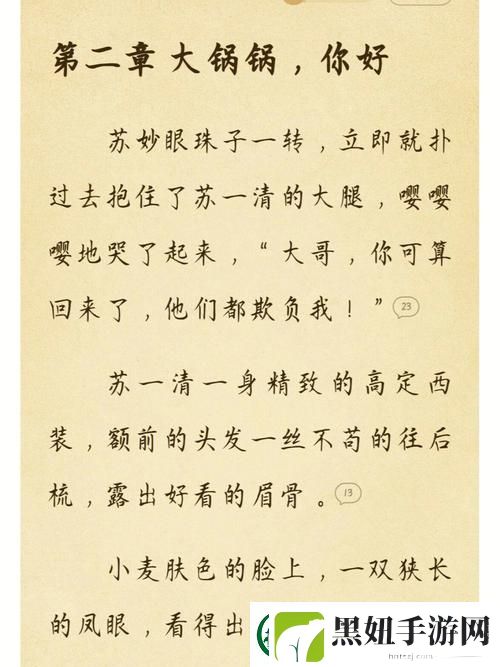 第二章 大锅锅，你好
苏妙眼珠子一转，立即就扑
过去抱住了苏一清的大腿，嘤嘤
嘤地哭了起来，“大哥，你可算
回来了，他们都欺负我！” 23
苏一清一身精致的高定西
装，额前的头发一丝不苟的往后
梳，露出好看的眉骨。 13
小麦肤色的脸上，一双狭长
的凤眼，看得出
黑妞手游网